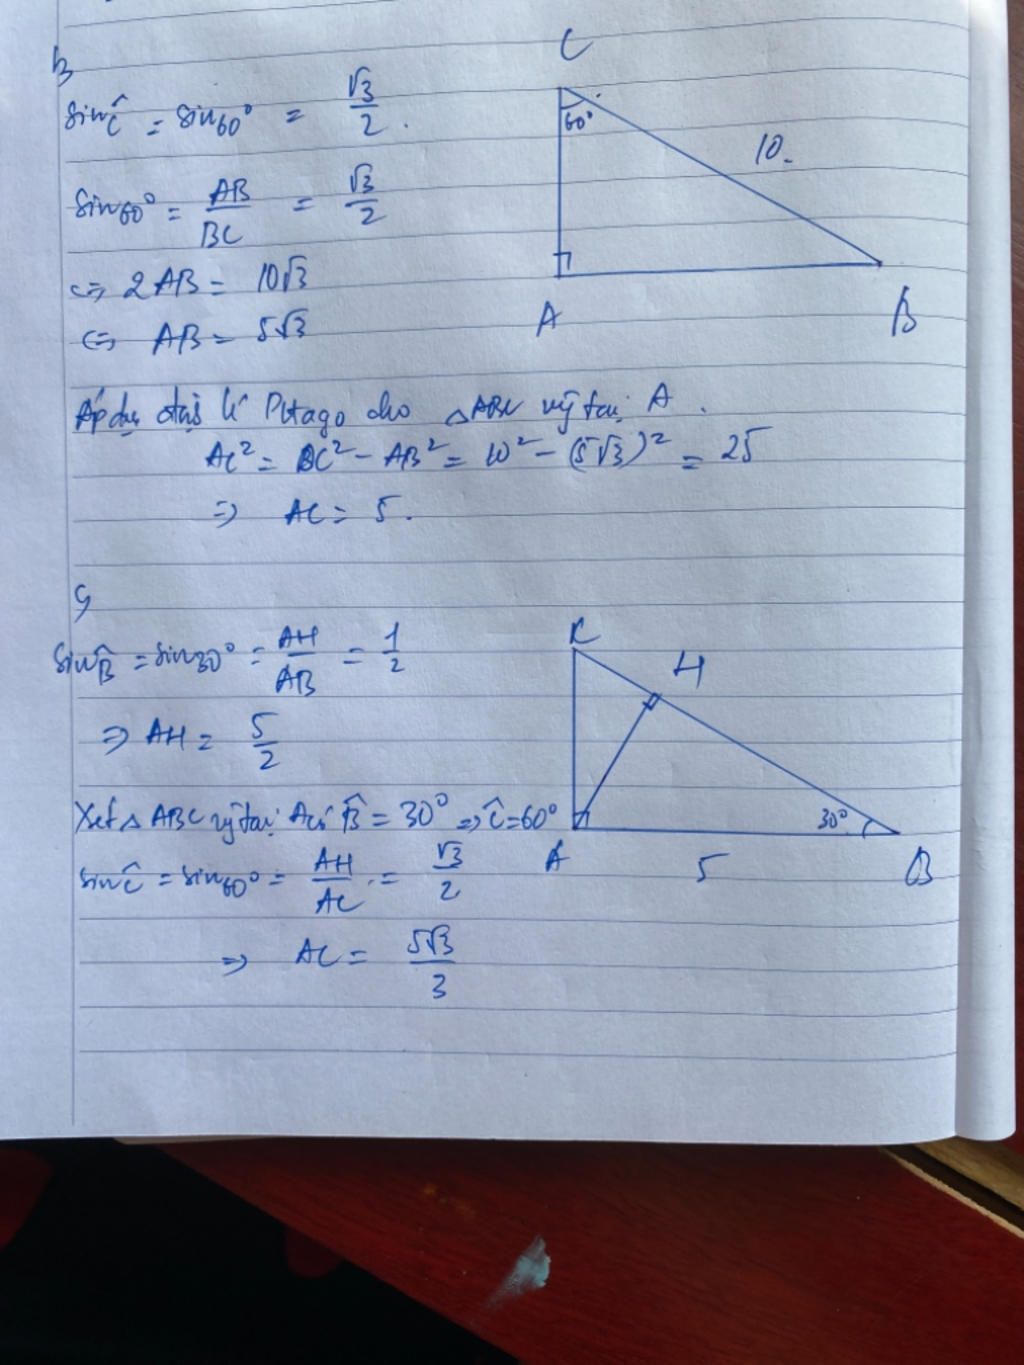 b
sin Ĉ = sin 60° = √3/2 .
sin 60° = AB/BC = √3/2
<=> 2AB = 10√3
<=> AB = 5√3
C
60°
10
A
B
Áp dụ định lí Pitago cho △ABC vg̃ tại A .
AC² = BC² - AB² = 10² - (5√3)² = 25
=> AC = 5 .
c
sin B̂ = sin 30° = AH/AB = 1/2
=> AH = 5/2
Xét △ ABC vg̃ tại A có B̂ = 30° => Ĉ = 60°
sin Ĉ = sin 60° = AH/AC = √3/2
=> AC = 5√3/3
C
H
30°
A
5
B